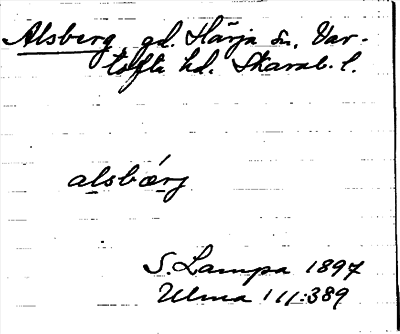 Alsberg gd. Härja sn. Var-
tofta hd. Skarab. l.
alsbærj
S. Lampa 1897
Ulma 111:389